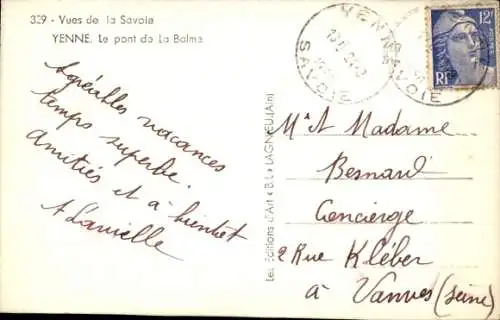 329 - Vues de la Savoie
YENNE. Le pont de La Balme
YENNE
SAVOIE
SAVOIE
12F
RF
Agréables vacances
temps superbe.
Amitiés et à bientôt
Les Editions d'Art « B.L » LAGNIEU (Ain)
M. et Madame
Besnard
Concierge
2 Rue Kléber
à Vanves (Seine)